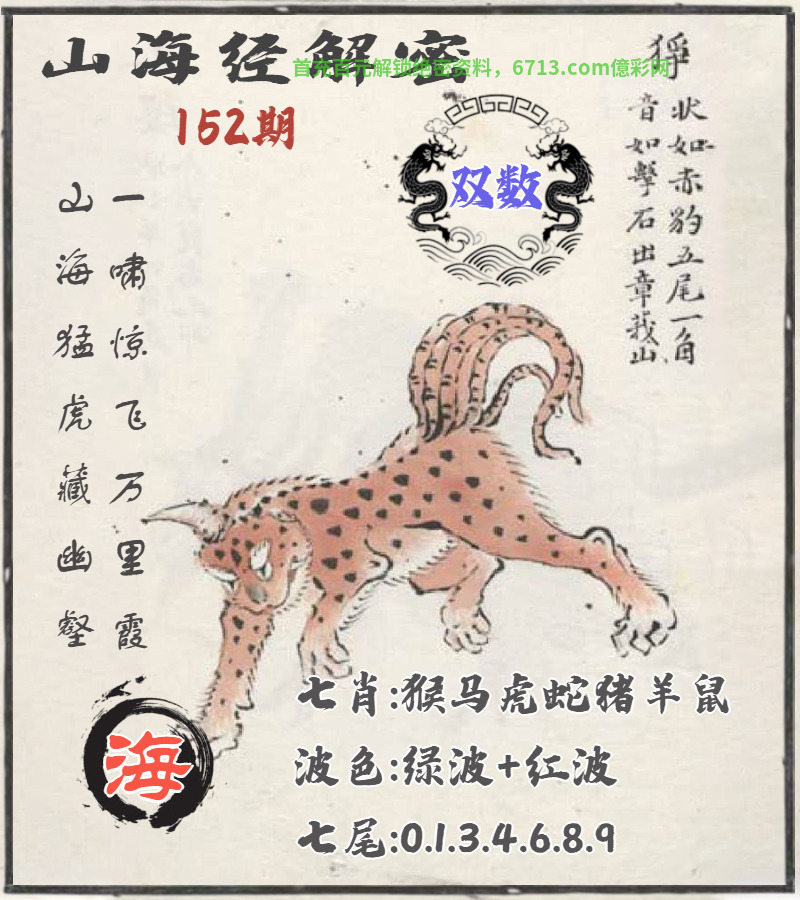 山海经解密
首充百元解锁绝密资料，6713.com億彩网
152期
双数
狰
状如赤豹五尾一角
音如擊石出章莪山
山海猛虎藏幽壑
一啸惊飞万里霞
海
七肖:猴马虎蛇猪羊鼠
波色:绿波+红波
七尾:0.1.3.4.6.8.9